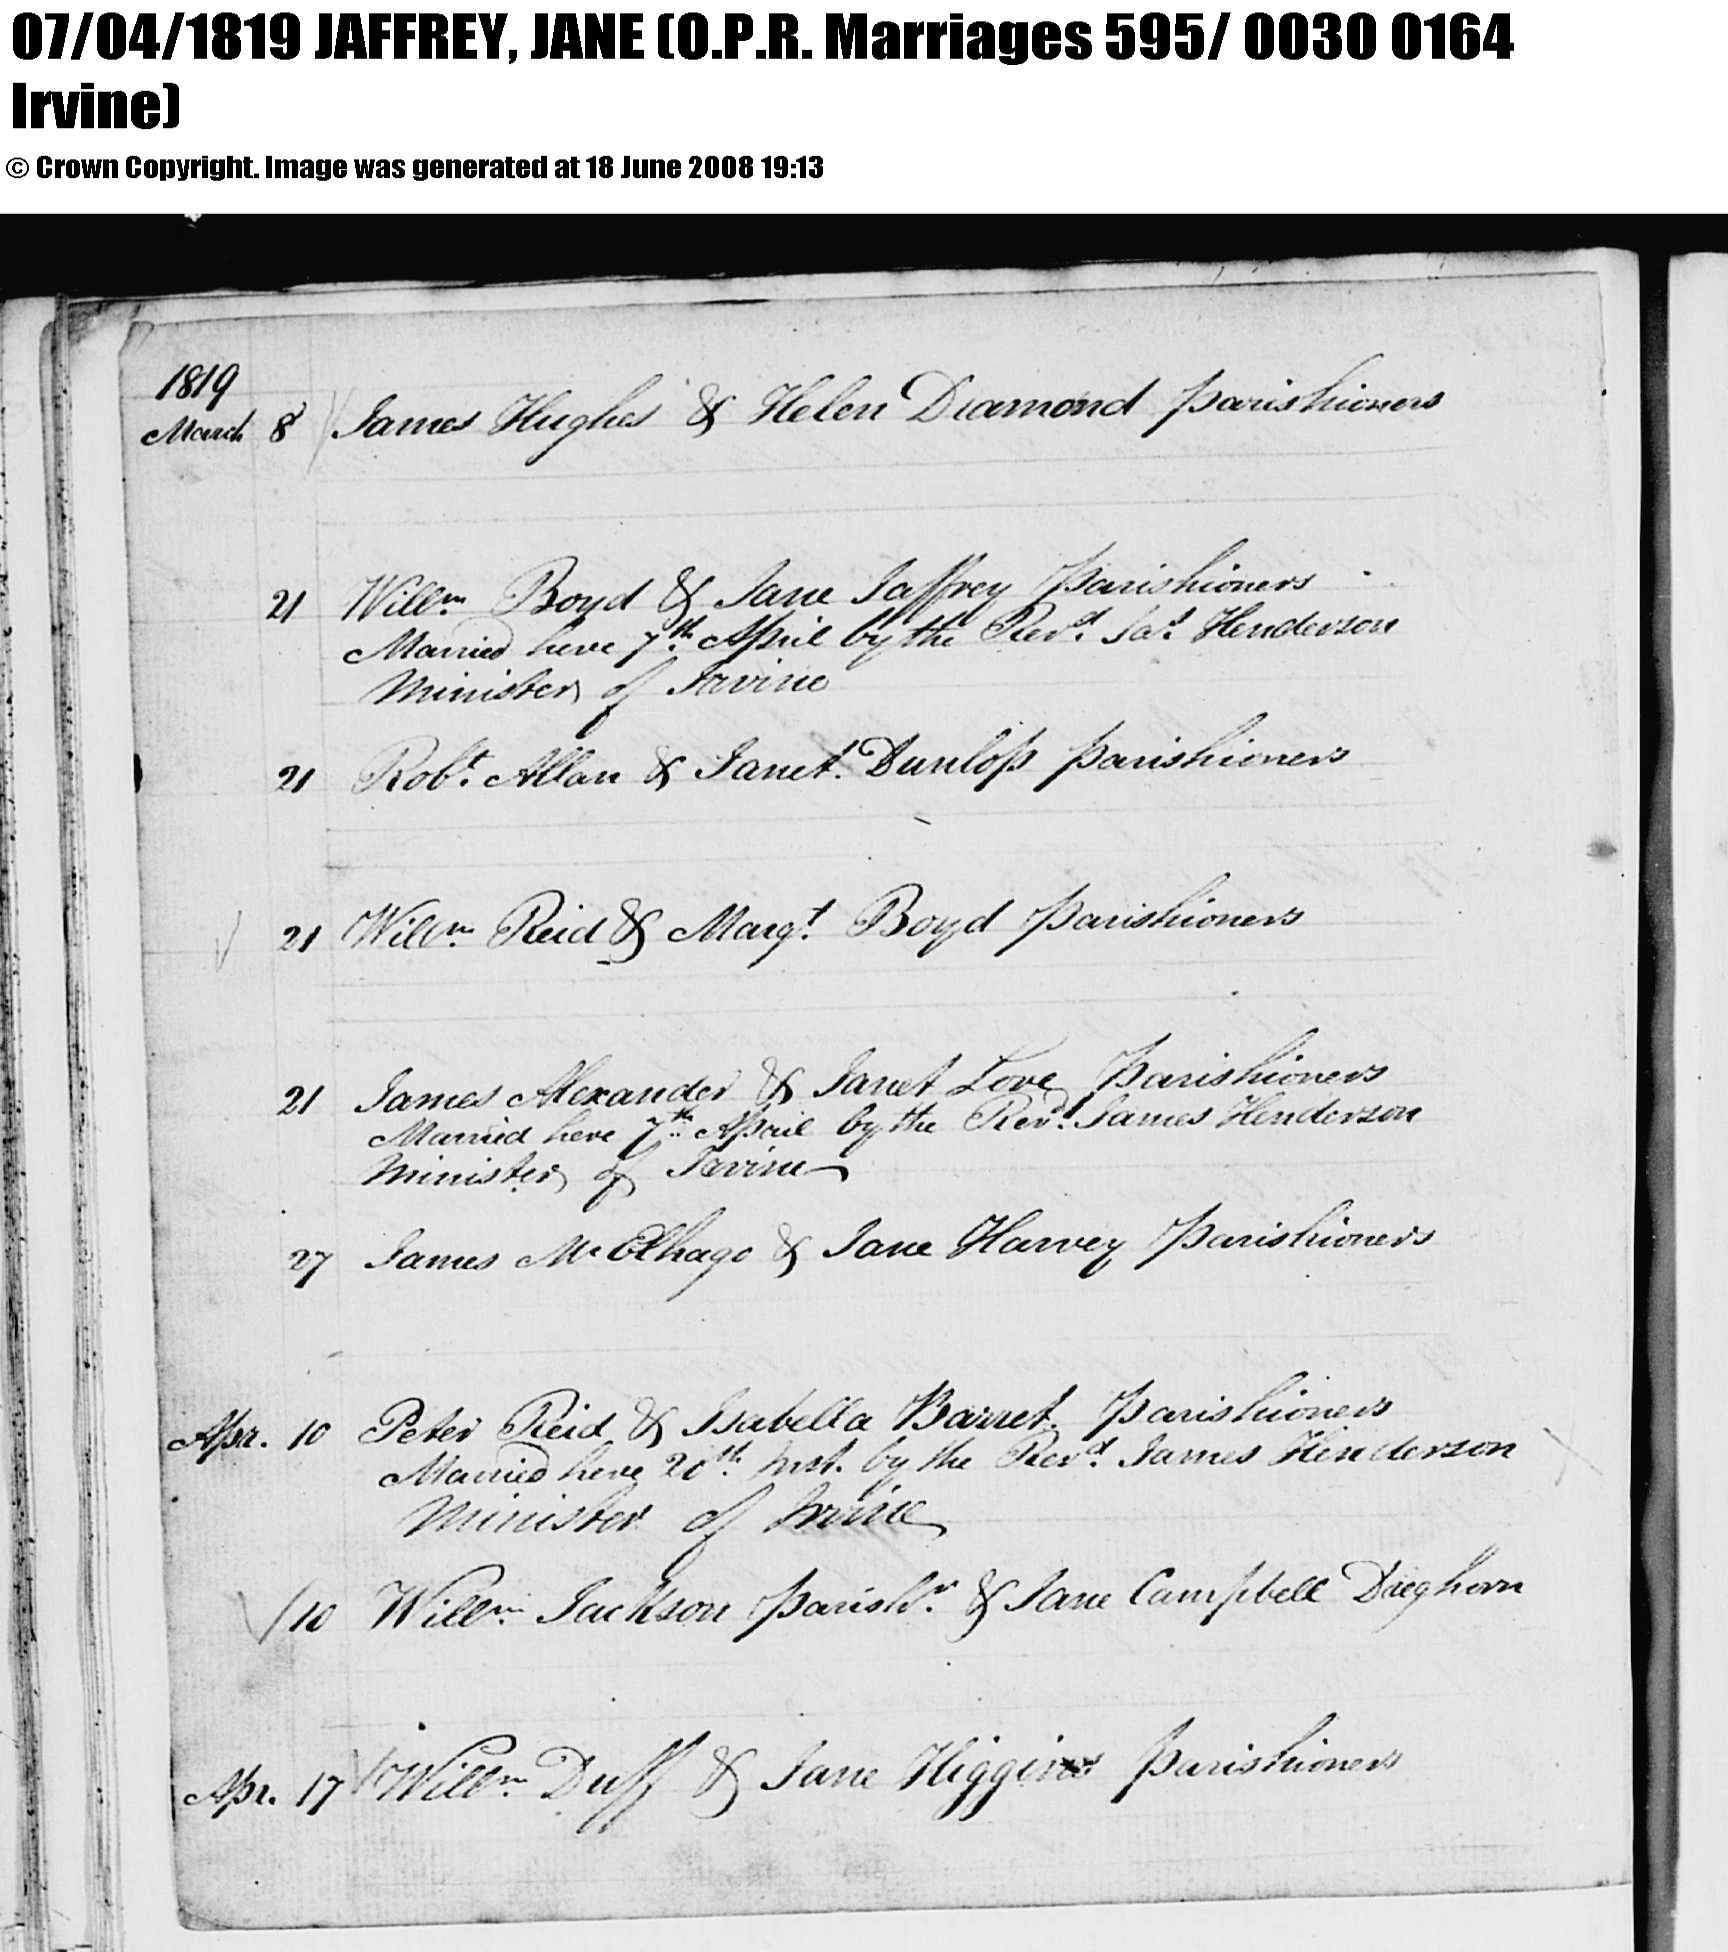 07/04/1819 JAFFREY, JANE (O.P.R. Marriages 595/ 0030 0164
Irvine)
© Crown Copyright. Image was generated at 18 June 2008 19:13
1819
March 8 James Hughes & Helen Diamond Parishioners
21 Willm Boyd & Jane Jaffrey Parishioners
Married here 7th April by the Revd Jas Henderson
Minister of Irvine
21 Robt Allan & Janet Dunlop Parishioners
21 Willm Reid & Margt Boyd Parishioners
21 James Alexander & Janet Love Parishioners
Married here 7th April by the Revd James Henderson
Minister of Irvine
27 James Mc Elhago & Jane Harvey Parishioners
Apr. 10 Peter Reid & Isabella Barret Parishioners
Married here 20th Inst. by the Revd James Henderson
Minister of Irvine
10 Willm Jackson Parishr & Jane Campbell Dreghorn
Apr. 17 Willm Duff & Jane Higgins Parishioners